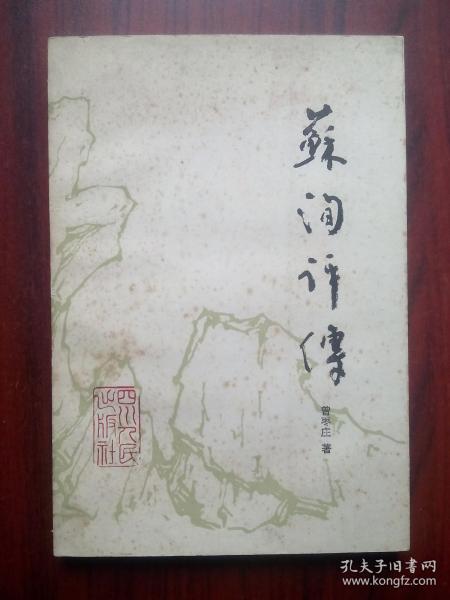 蘇洵评傳
曾枣庄 著
四川人民
出版社
孔夫子旧书网
www.kongfz.com